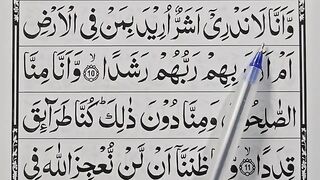 وَّاَنَّا لَا نَدْرِىْٓ اَشَرٌّ اُرِيْدَ بِمَنْ فِى الْاَرْضِ
اَمْ اَرَادَ بِهِمْ رَبُّهُمْ رَشَدًا ۙ‏ ﴿10﴾ وَّاَنَّا مِنَّا
الصّٰلِحُوْنَ وَمِنَّا دُوْنَ ذٰلِكَ‌ ؕ كُنَّا طَرَآئِقَ
قِدَدًا ۙ‏ ﴿11﴾ ظَنَنَّاۤ اَنْ لَّنْ نُّعْجِزَ اللّٰهَ فِى